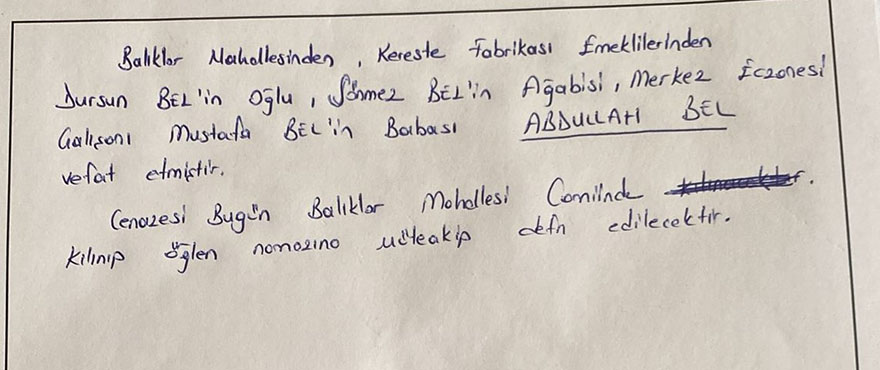 Balıklar Mahallesinden, Kereste Fabrikası Emeklilerinden
Dursun BEL'in Oğlu, Sönmez BEL'in Ağabisi, Merkez Eczanesi
Çalışanı Mustafa BEL'in Babası ABDULLAH BEL
vefat etmiştir.
Cenazesi Bugün Balıklar Mahallesi Camiinde
Kılınıp öğlen namazına müteakip defn edilecektir.